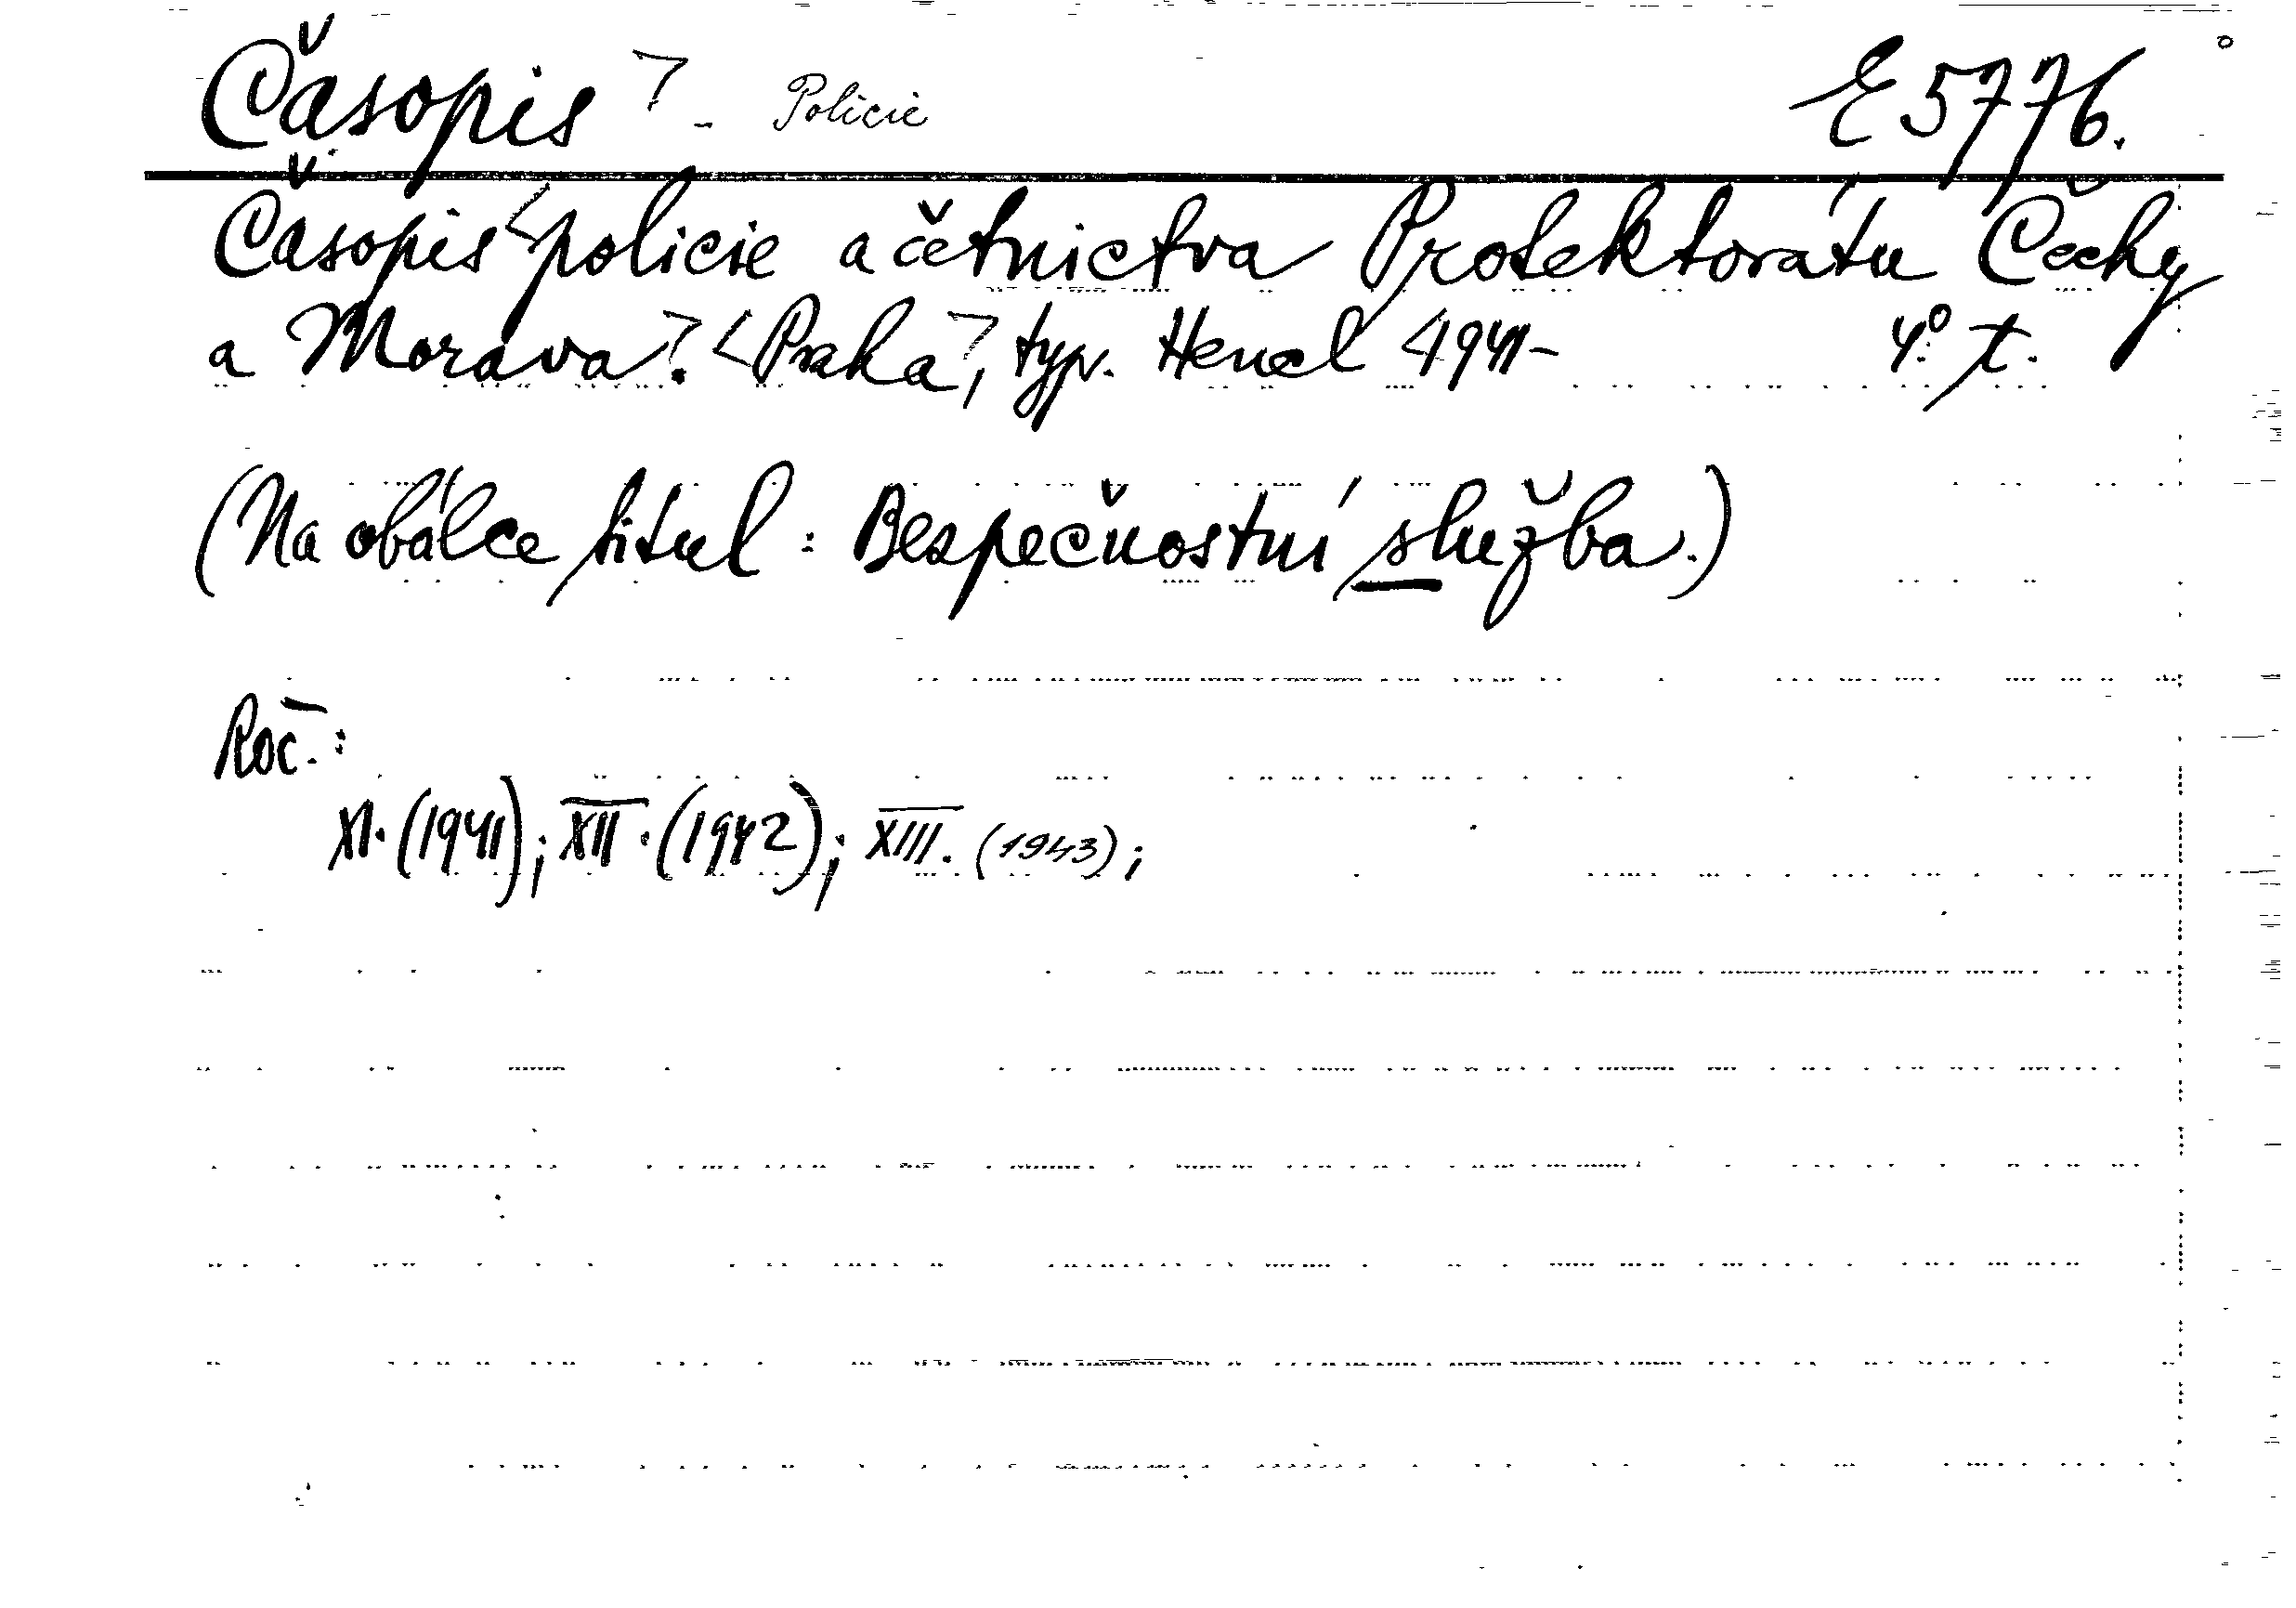 Časopis - Policie E 5776.
Časopis policie a četnictva Protektorátu Čechy
a Morava. Praha, typ. Hencl 1941- 4° t.
(Na obálce titul: Bezpečnostní služba.)
Roč.:
XI. (1941); XII. (1942); XIII. (1943);